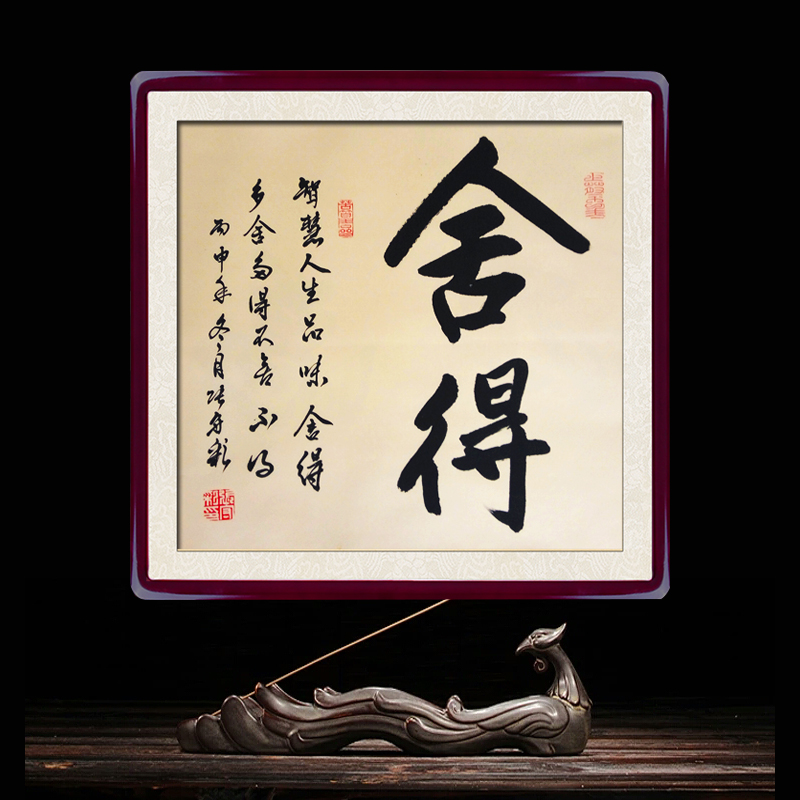 舍得
智慧人生品味舍得
多舍多得不舍不得
丙申年冬月张